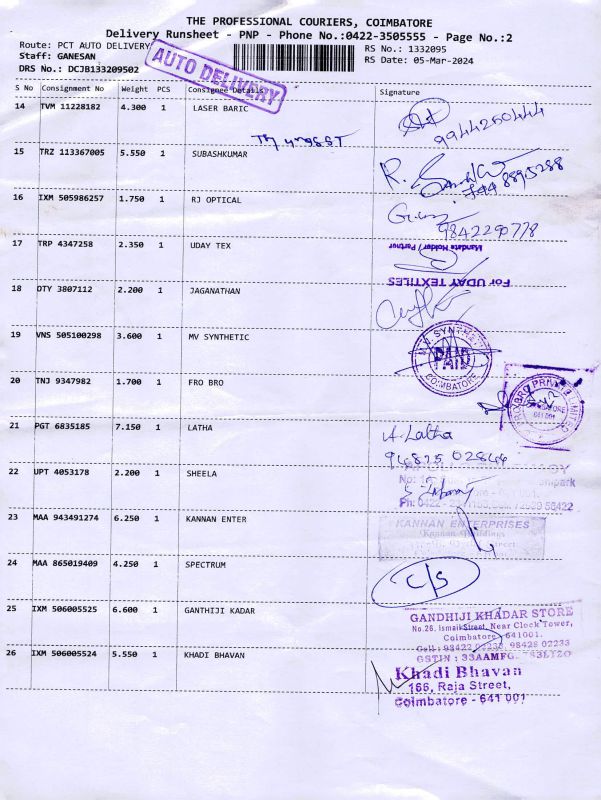 THE PROFESSIONAL COURIERS, COIMBATORE
Delivery Runsheet - PNP - Phone No.:0422-3505555 - Page No.:2
Route: PCT AUTO DELIVERY
RS No.: 1332095
Staff: GANESAN
RS Date: 05-Mar-2024
DRS No.: DCJB133209502
AUTO DELIVERY
S No Consignment No Weight PCS Consignee Details Signature
14 TVM 11228182 4.300 1 LASER BARIC
9944250444
15 TRZ 113367005 5.550 1 SUBASHKUMAR
R.
8895288
16 IXM 505986257 1.750 1 RJ OPTICAL
9842290778
17 TRP 4347258 2.350 1 UDAY TEX
Mandate Holder/Partner
For UDAY TEXTILES
18 DTY 3807112 2.200 1 JAGANATHAN
19 VNS 505100298 3.600 1 MV SYNTHETIC
M.V. SYNTHETIC
PAID
COIMBATORE
20 TNJ 9347982 1.700 1 FRO BRO
PRIVATE LIMITED
21 PGT 6835185 7.150 1 LATHA
A. Latha
94875 02844
22 UPT 4053178 2.200 1 SHEELA
23 MAA 943491274 6.250 1 KANNAN ENTER
KANNAN ENTERPRISES
Kannan Buildings
Street
24 MAA 865019409 4.250 1 SPECTRUM
C/S
25 IXM 506005525 6.600 1 GANTHIJI KADAR
GANDHIJI KHADAR STORE
No.26, Ismail Street, Near Clock Tower,
Coimbatore - 641001.
Cell : 98422 02233, 98428 02233
GSTIN : 33AAMFG
26 IXM 506005524 5.550 1 KHADI BHAVAN
Khadi Bhavan
166, Raja Street,
Coimbatore - 641 001